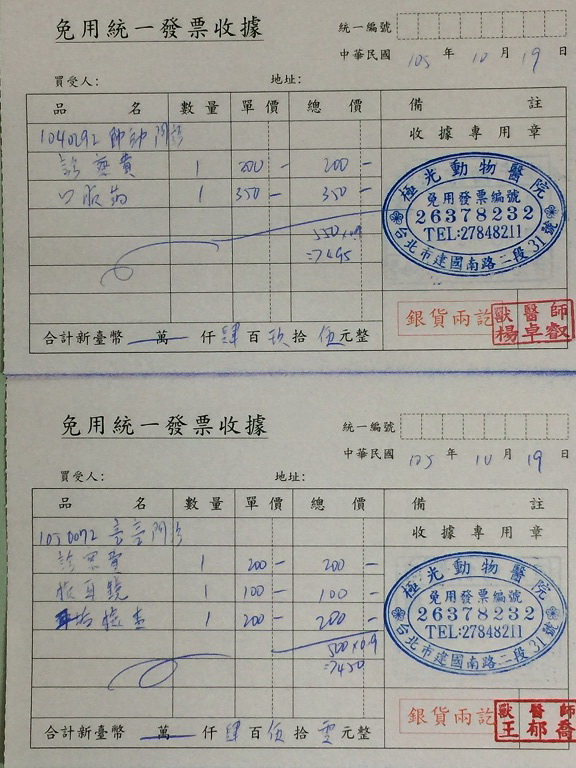 免用統一發票收據
統一編號
中華民國 105 年 10 月 19 日
買受人: 地址:
品名 數量 單價 總價 備註
1040292 帥帥 門診
收據專用章
診療費 1 200- 200-
口服葯 1 350- 350-
550×0.9
=>495
極光動物醫院
免用發票編號
26378232
TEL:27848211
台北市建國南路二段31號
銀貨兩訖
獸醫師
楊卓叡
合計新臺幣 萬 仟 肆 百 玖 拾 伍 元整
免用統一發票收據
統一編號
中華民國 105 年 10 月 19 日
買受人: 地址:
品名 數量 單價 總價 備註
1050072 言言 門診
收據專用章
診察費 1 200- 200-
檢耳鏡 1 100- 100-
檢查 1 200- 200-
500×0.9
=>450
極光動物醫院
免用發票編號
26378232
TEL:27848211
台北市建國南路二段31號
銀貨兩訖
獸醫師
王郁喬
合計新臺幣 萬 仟 肆 百 伍 拾 零 元整